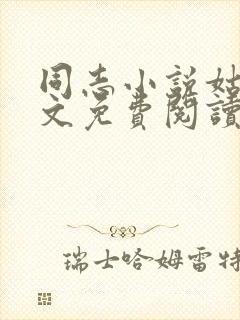 同志小説姑
文免費閱讀
瑞士哈姆雷特